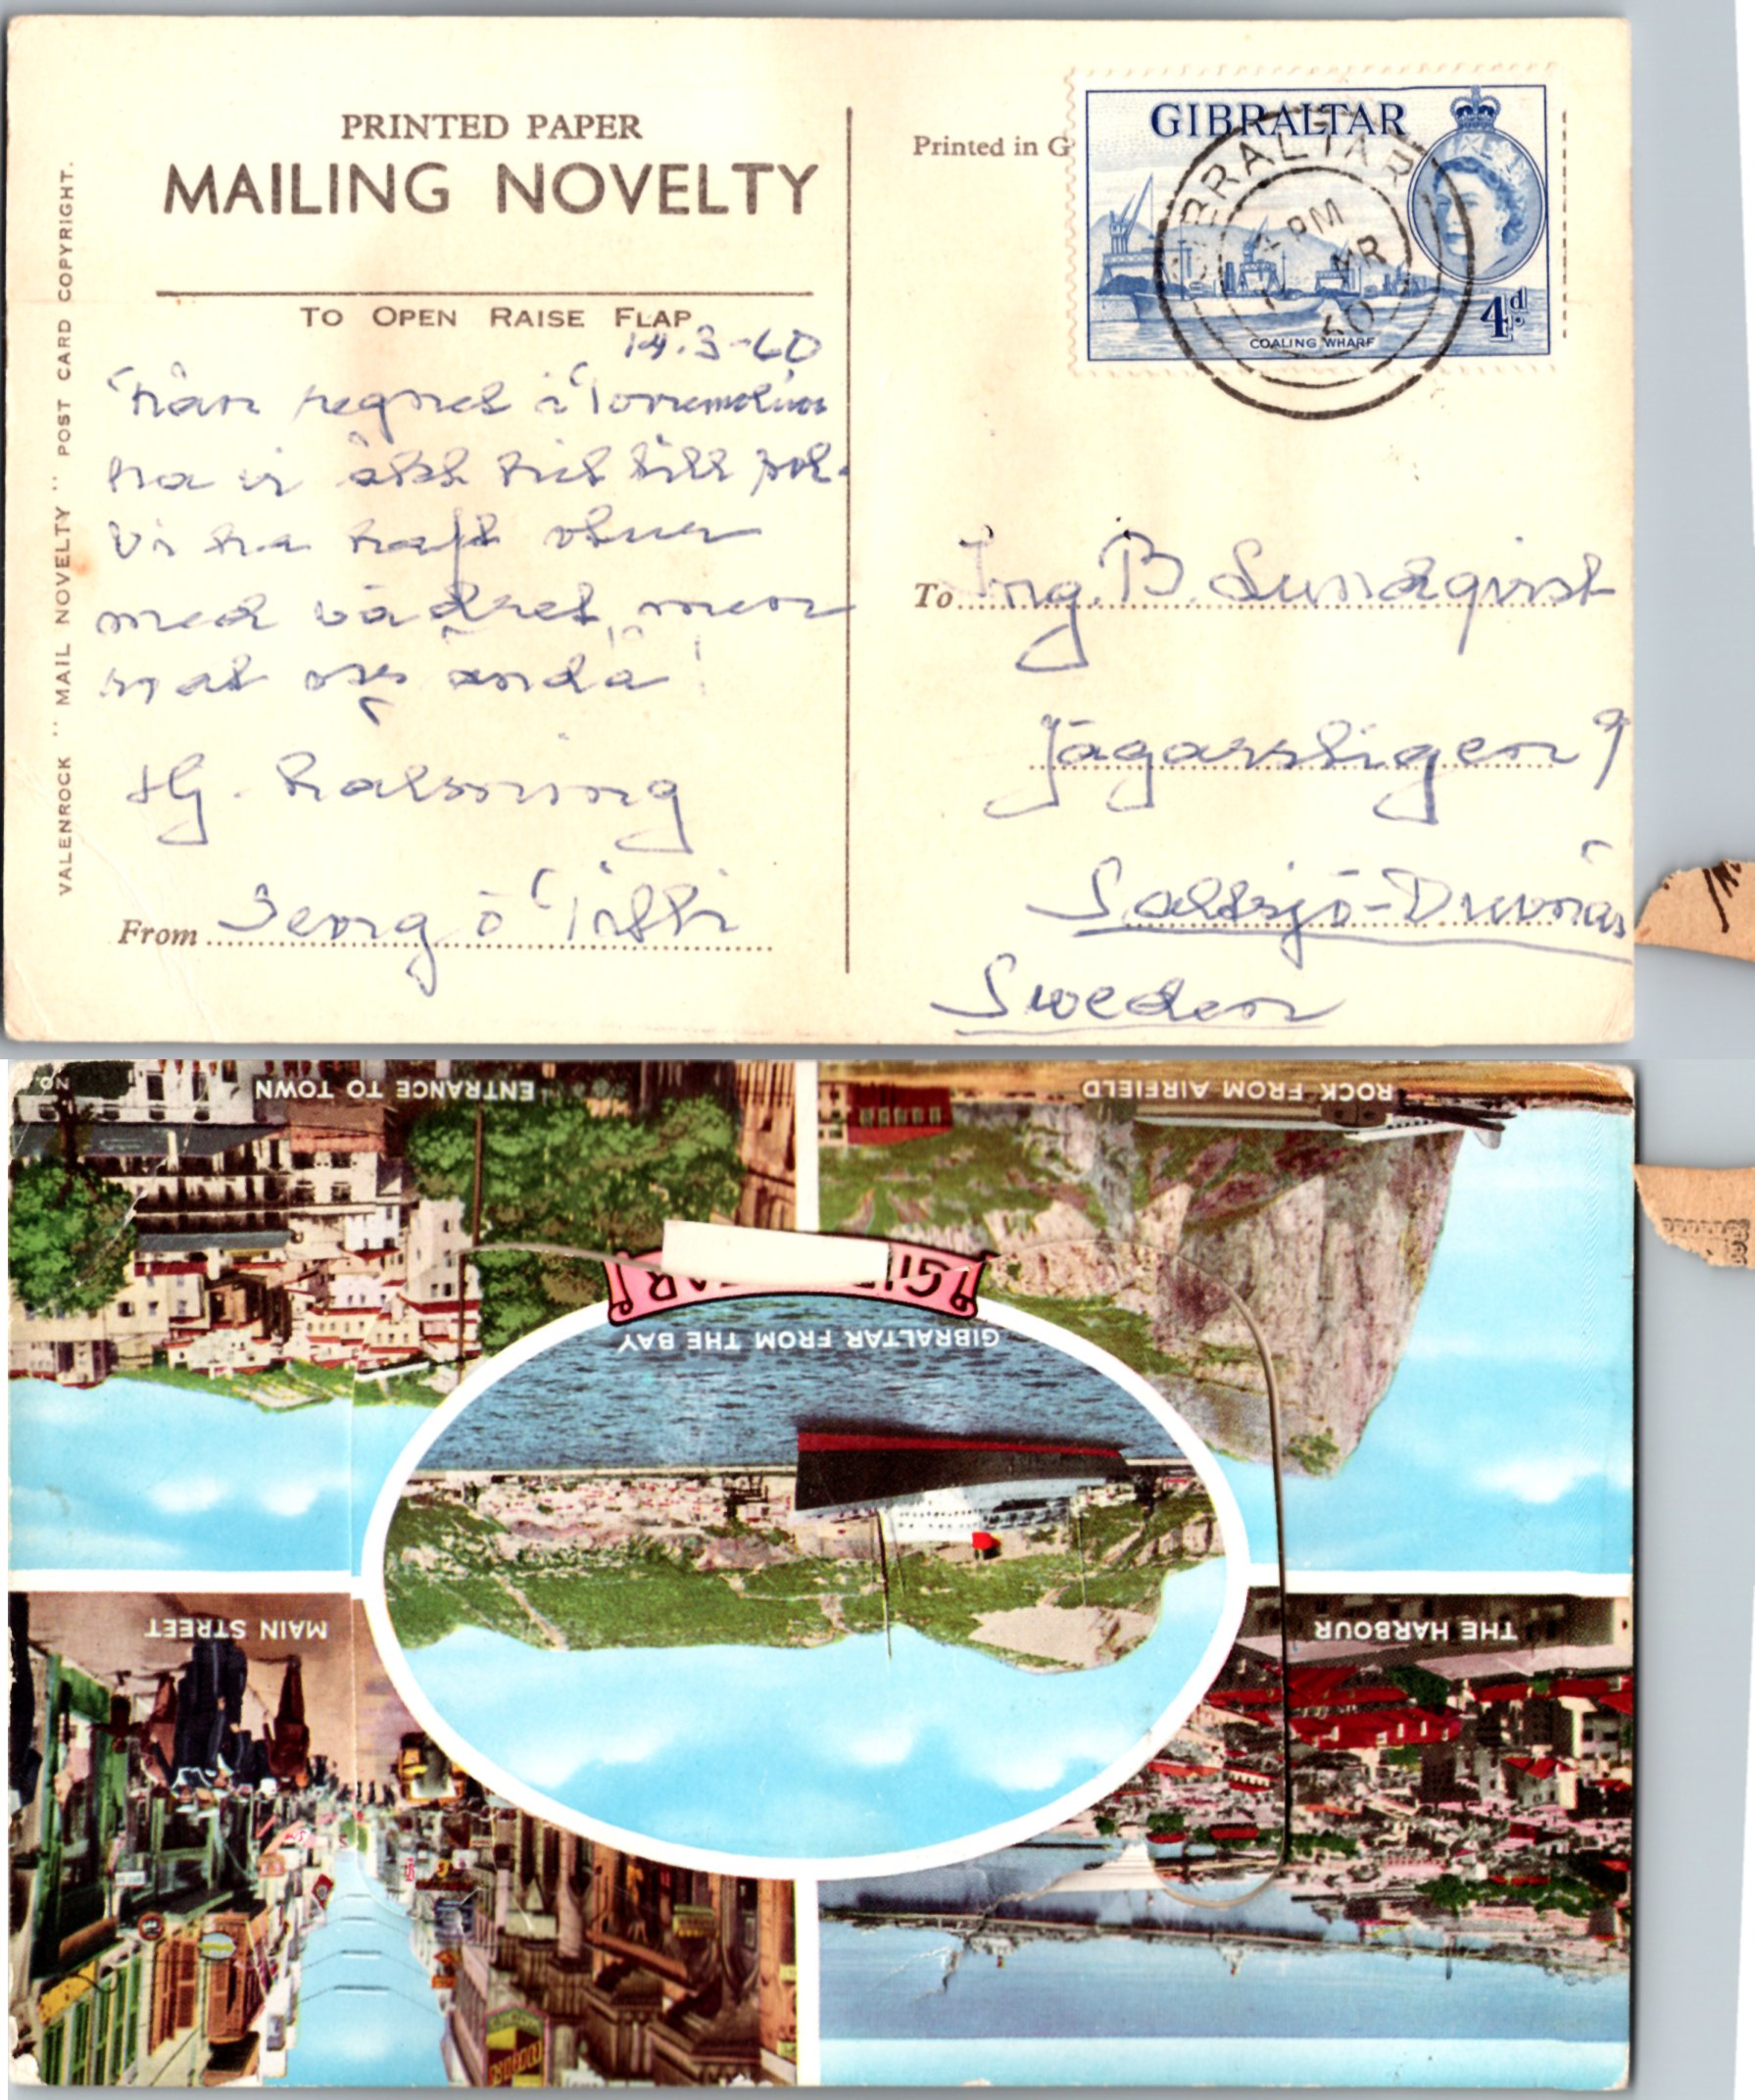 PRINTED PAPER
MAILING NOVELTY
TO OPEN RAISE FLAP
14.3-60
Från regnet i Torremolinos
ha vi åkt hit till sol.
Vi ha haft otur
med vädret, men
mat oss ändå!
Hj. hälsning
From Georg o Titti
VALENROCK "MAIL NOVELTY" POST CARD COPYRIGHT.
Printed in G
GIBRALTAR
COALING WHARF
4d.
GIBRALTAR
PM
60
To Ing. B. Lundqvist
Jägarstigen 9
Saltsjö-Duvnäs
Sweden
NO.
ENTRANCE TO TOWN
ROCK FROM AIRFIELD
GIBRALTAR FROM THE BAY
MAIN STREET
THE HARBOUR